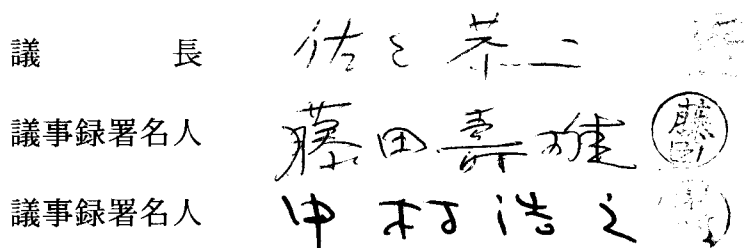 議長 佐々恭二
議事録署名人 藤田壽雄 藤田
議事録署名人 中村浩之